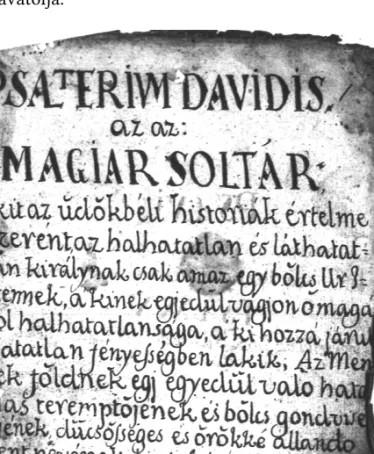 avatolja.
PSALTERIVM DAVIDIS.
az az:
MAGIAR SOLTÁR:
kit az üdőkbéli historiák értelme
szerént az halhatatlan és láthatat=
an királynak csak amaz egy bölcs Ur I=
tennek, a kinek egjedül vagjon őmaga
ól halhatatlansága, a ki hozzá járu
atatlan fényeſségben lakik, Az Men
ek földnek egj egyedül való hata
más teremptőjének és bölcs gondvise
jének, dücsősséges és örökké állando